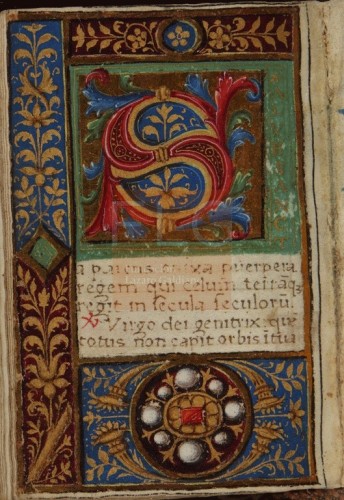 S
a parens enixa puerpera
regem qui celum terraq;
regit in secula seculorū.
℣ Virgo dei genitrix que
totus non capit orbis ītua